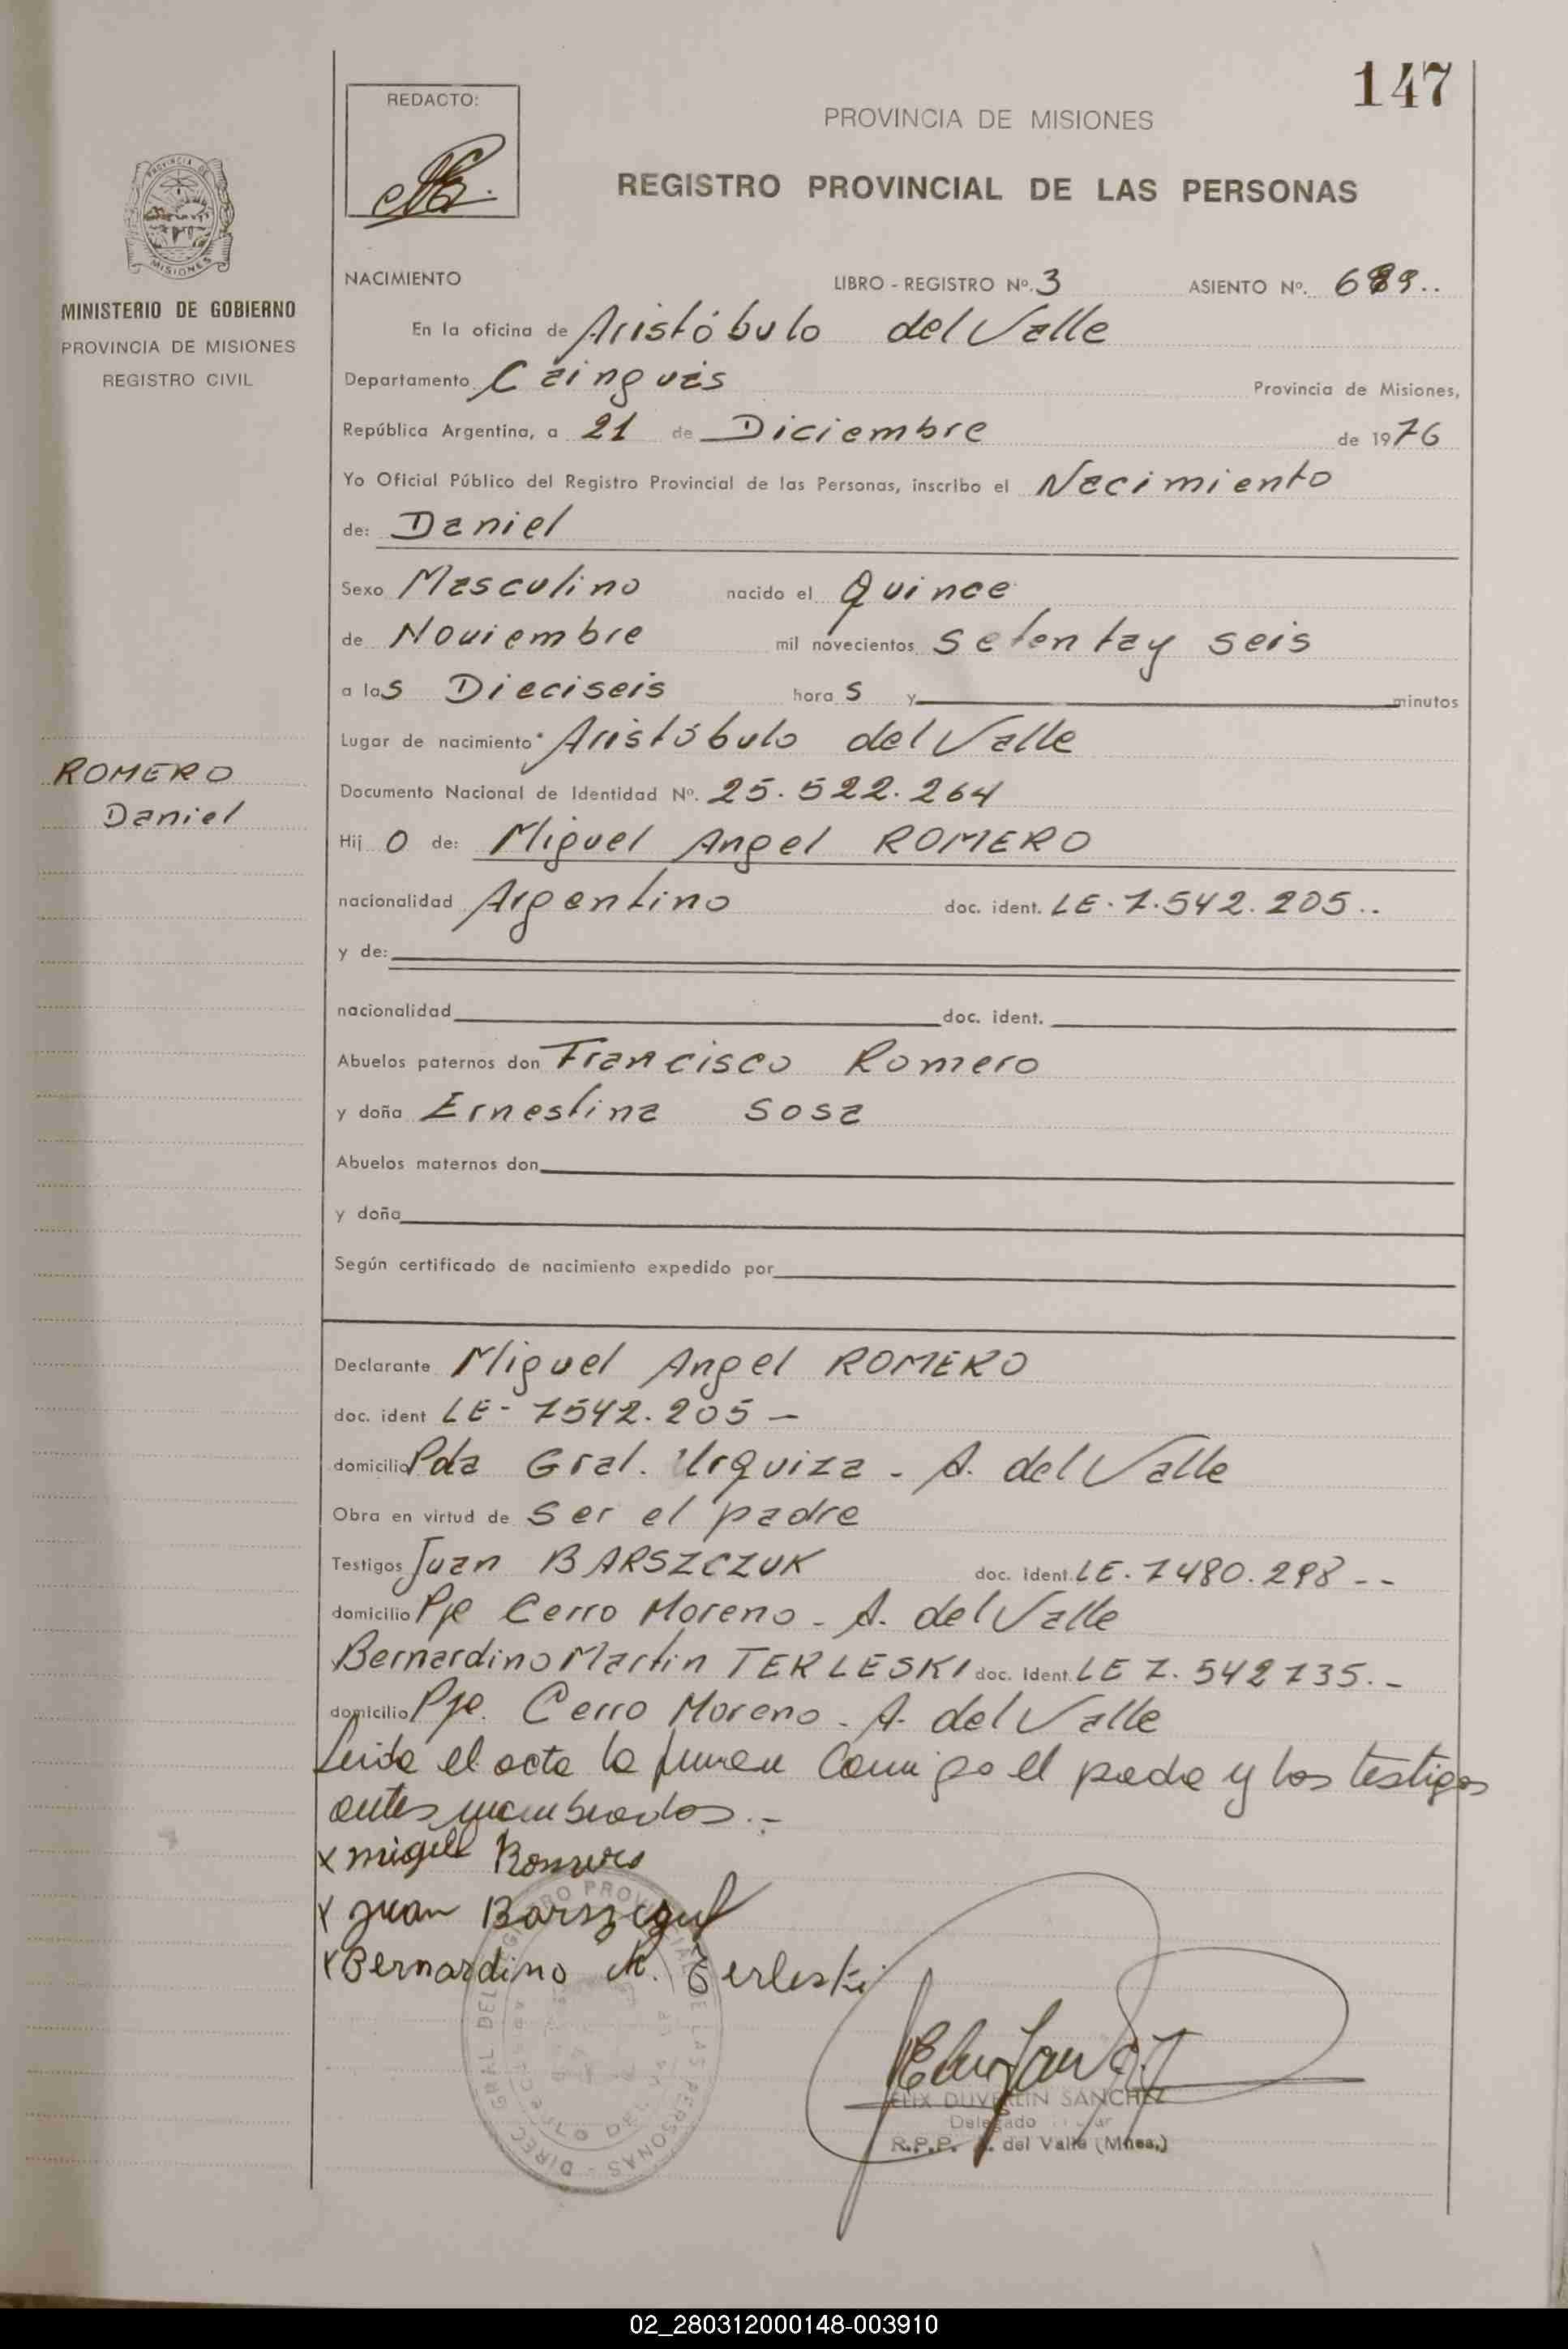 147
REDACTO:
PROVINCIA DE MISIONES
REGISTRO PROVINCIAL DE LAS PERSONAS
MISIONES
MINISTERIO DE GOBIERNO
PROVINCIA DE MISIONES
REGISTRO CIVIL
NACIMIENTO LIBRO - REGISTRO Nº. 3 ASIENTO Nº. 689..
En la oficina de Aristóbulo del Valle
Departamento Cainguás Provincia de Misiones,
República Argentina, a 21 de Diciembre de 1976
Yo Oficial Público del Registro Provincial de las Personas, inscribo el Nacimiento
de: Daniel
Sexo Masculino nacido el Quince
de Noviembre mil novecientos setentay seis
a las Dieciseis horas y minutos
Lugar de nacimiento Aristóbulo del Valle
ROMERO
Daniel
Documento Nacional de Identidad Nº. 25.522.264
Hijo de: Miguel Angel ROMERO
nacionalidad Argentino doc. ident. LE. 7.542.205..
y de:
nacionalidad doc. ident.
Abuelos paternos don Francisco Romero
y doña Ernestina Sosa
Abuelos maternos don
y doña
Según certificado de nacimiento expedido por
Declarante Miguel Angel ROMERO
doc. ident LE- 7542.205 -
domicilio Pda Gral. Urquiza - A. del Valle
Obra en virtud de ser el padre
Testigos Juan BARSZCZUK doc. ident. LE. 7480.298 --
domicilio Pje Cerro Moreno - A. del Valle
Bernardino Martin TERLESKI doc. ident. LE 7.542735.-
domicilio Pje. Cerro Moreno - A. del Valle
Leida el acta la firman Conmigo el padre y los testigos
antes nombrados.-
x miguel Romero
x Juan Barszczuk
x Bernardino M. Terleski
DIREC. GRAL DEL REGISTRO PROVINCIAL DE LAS PERSONAS
FELIX DUVERLIN SANCHEZ
Delegado
R.P.P. A. del Valle (Mnes.)
02_280312000148-003910